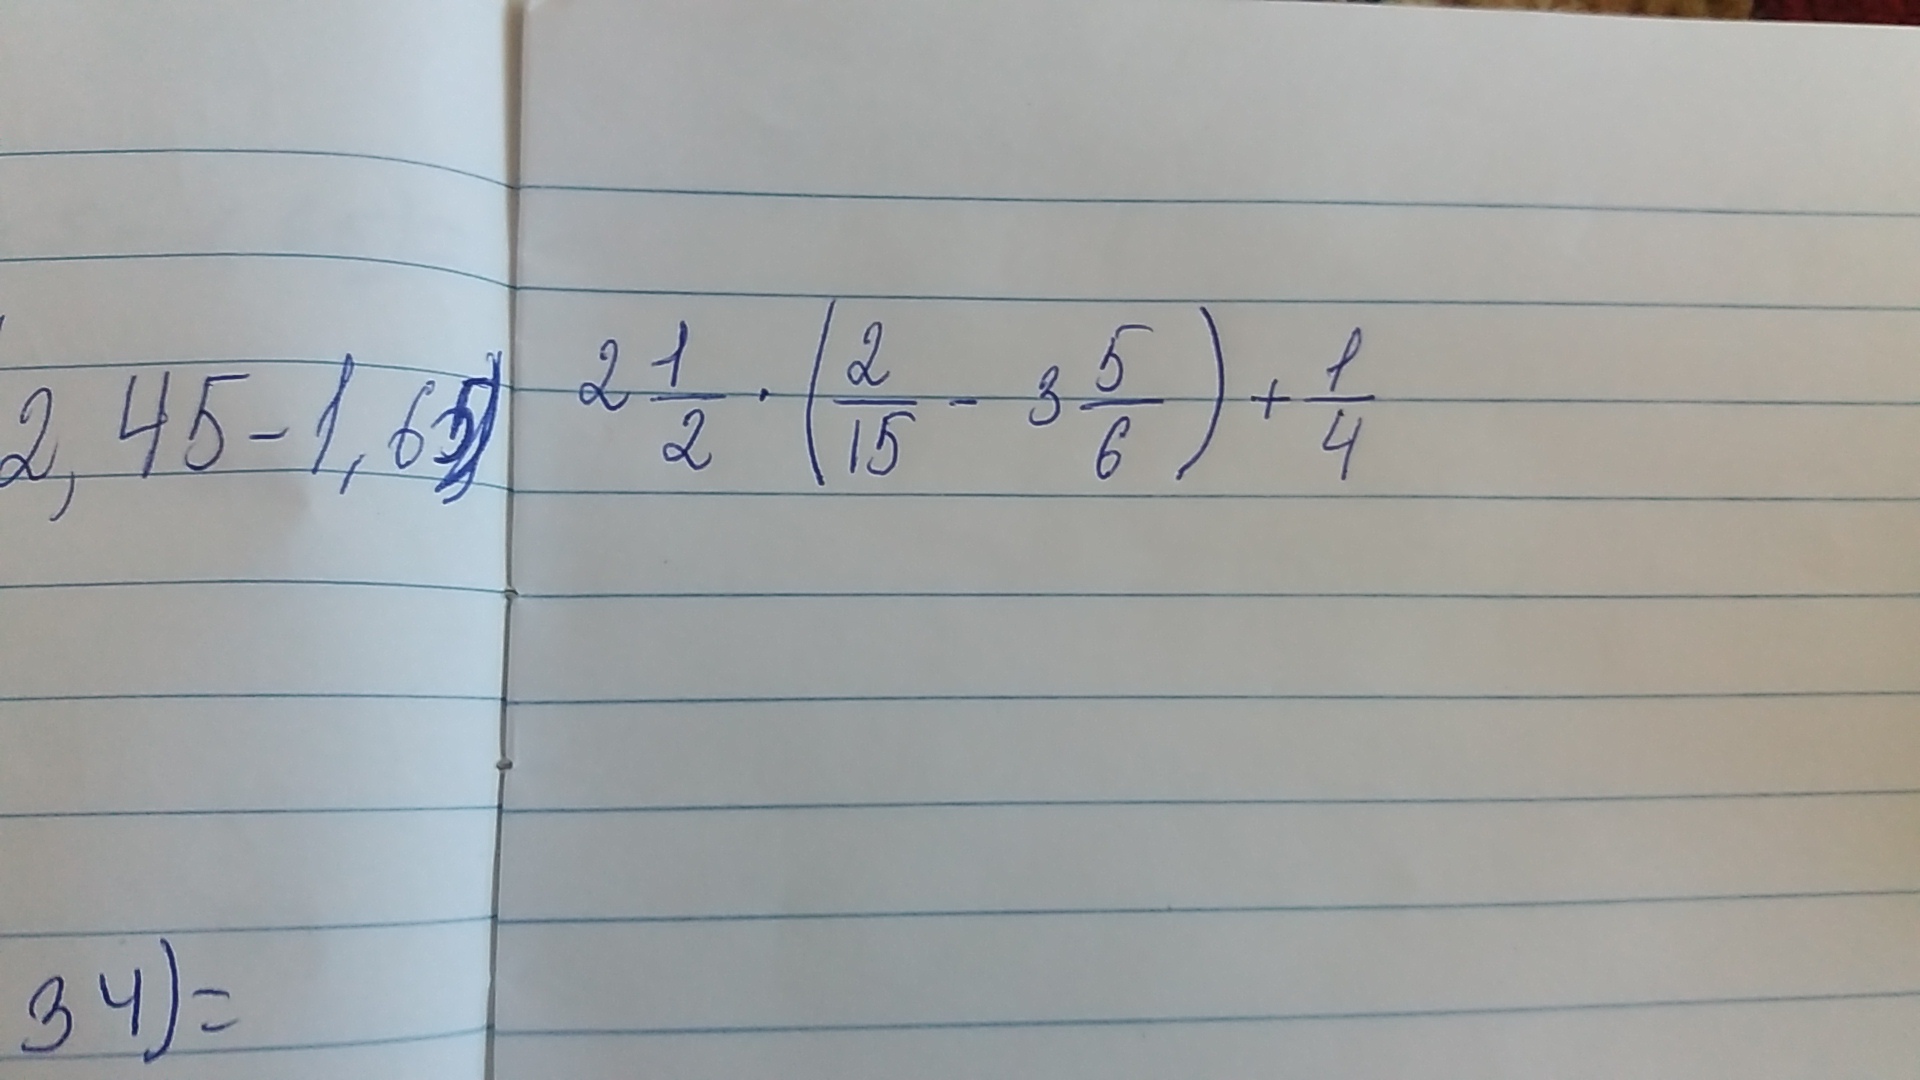 2,45-1,65)
2 1/2 · (2/15 - 3 5/6) + 1/4
34)=